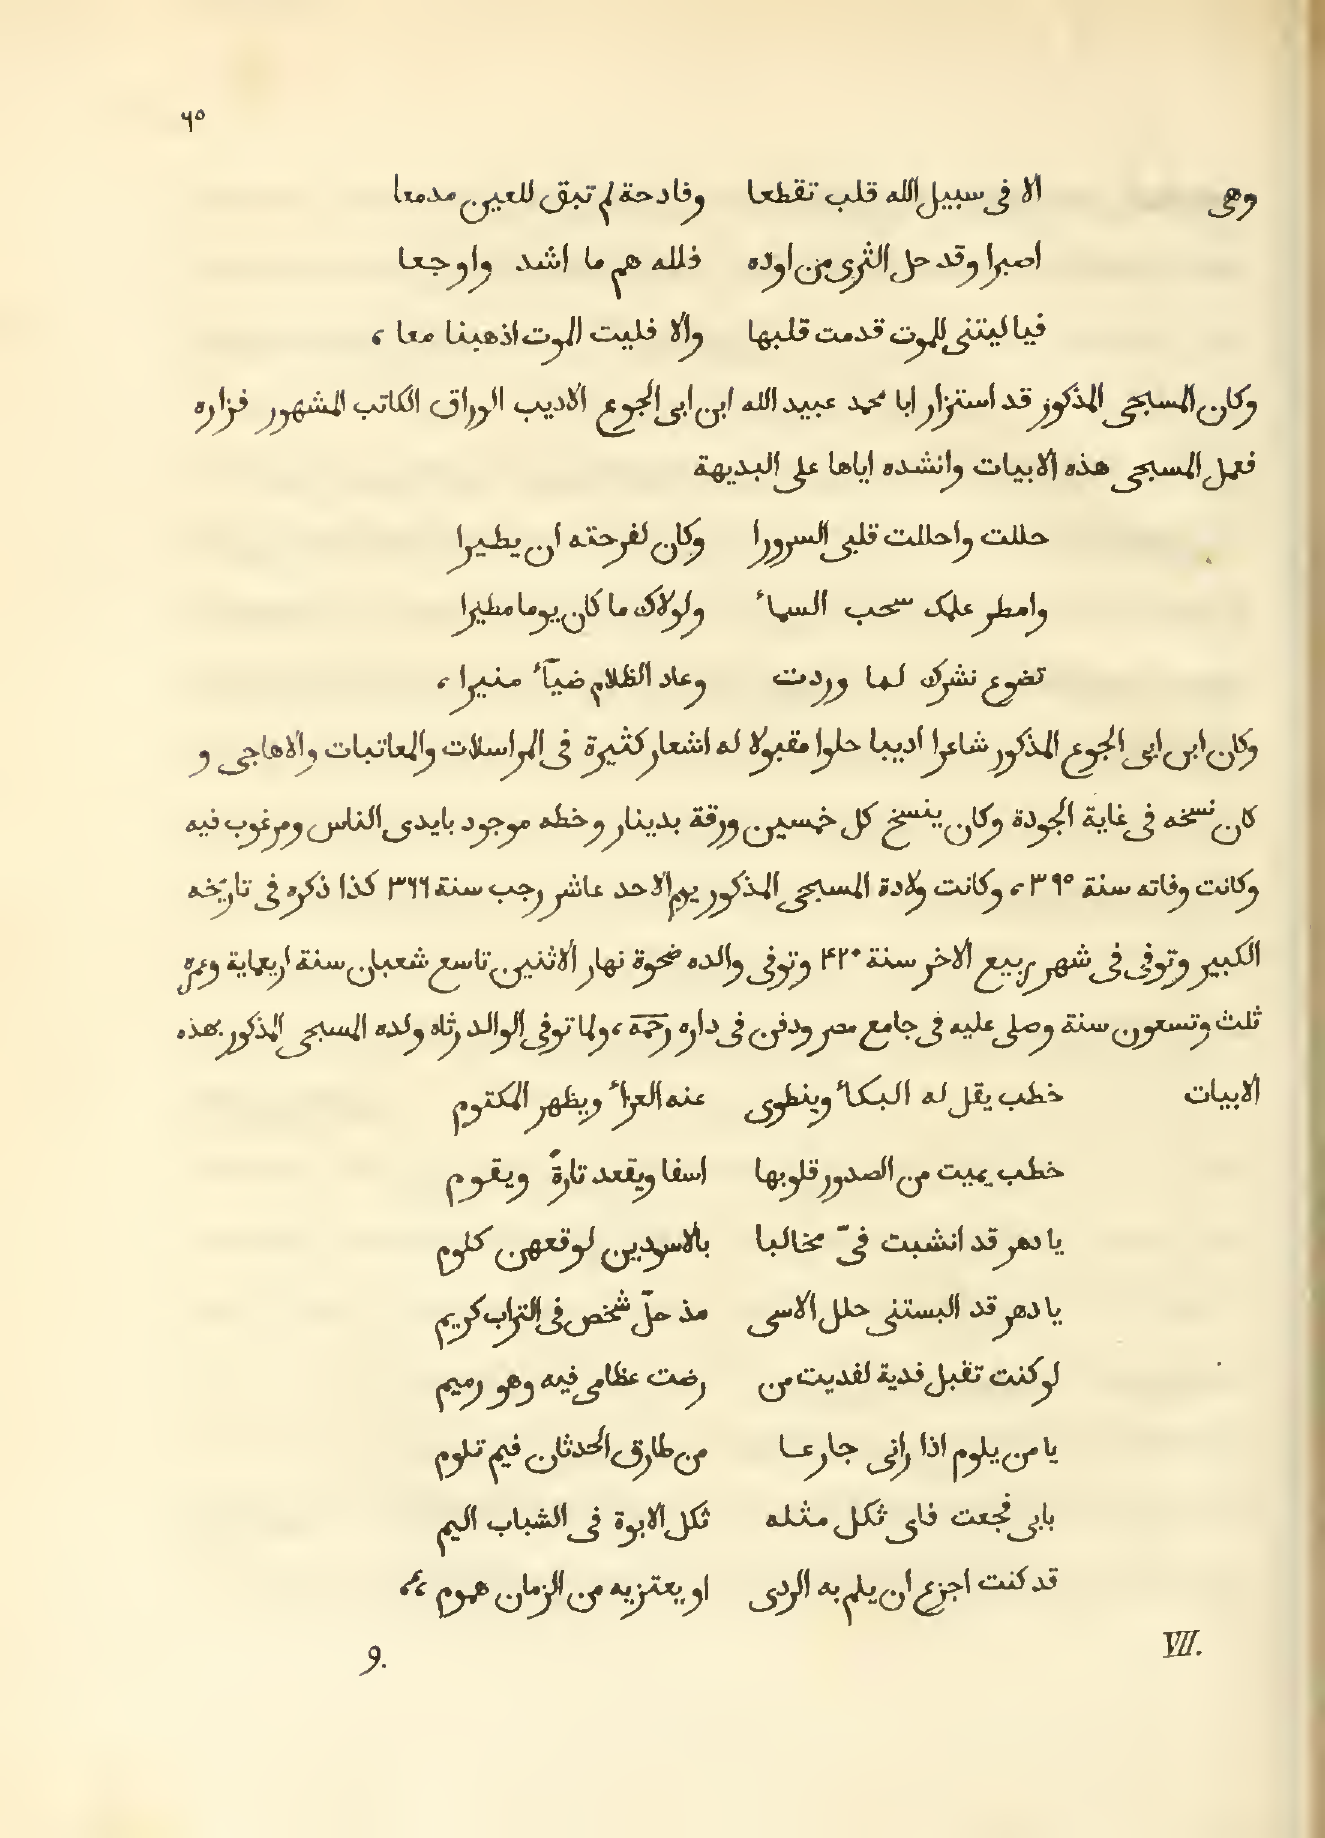 ٦٥
وهى الا فى سبيل الله قلب تقطعا وفادحة لم تبق للعين مدمعا
اصبرا وقد حل الثرى من اوده فلله هم ما اشد واوجعا
فيا ليتنى للموت قدمت قلبها والا فليت الموت اذهبنا معا ،
وكان المسبحى المذكور قد استزار ابا محمد عبيد الله ابن ابى الجوع الاديب الوراق الكاتب المشهور فزاره
فعمل المسبحى هذه الابيات وانشده اياها على البديهة
حللت واحللت قلبى السرورا وكان لفرحته ان يطيرا
وامطر علمك سحب السمأ ولولاك ما كان يوما مطيرا
تضوع نشرك لما وردت وعاد الظلام ضيآء منيرا ،
وكان ابن ابى الجوع المذكور شاعرا اديبا حلوا مقبولا له اشعار كثيرة فى المراسلات والمعاتبات والاهاجى و
كان نسخه فى غاية الجودة وكان ينسخ كل خمسين ورقة بدينار وخطه موجود بايدى الناس ومرغوب فيه
وكانت وفاته سنة ٣٩٥ ، وكانت ولادة المسبحى المذكور يوم الاحد عاشر رجب سنة ٣٦٦ كذا ذكره فى تاريخه
الكبير وتوفى فى شهر ربيع الاخر سنة ٤٢٠ وتوفى والده ضحوة نهار الاثنين تاسع شعبان سنة اربعماية وعمره
ثلث وتسعون سنة وصلى عليه فى جامع مصر ودفن فى داره رحمه ، ولما توفى الوالد رثاه ولده المسبحى المذكور بهذه
الابيات خطب يقل له البكأ وينطوى عنه العزأ ويظهر المكتوم
خطب يميت من الصدور قلوبها اسفا ويقعد تارةً ويقوم
يا دهر قد انشبت فىّ مخالبا بالاسودين لوقعهن كلوم
يا دهر قد البستنى حلل الاسى مذ حلّ شخص فى التراب كريم
لو كنت تقبل فدية لفديت من رضت عظامى فيه وهو رميم
يا من يلوم اذا رانى جازعا من طارق الحدثان فيم تلوم
بابى فجعت فاى ثكل مثله ثكل الابوة فى الشباب اليم
قد كنت اجزع ان يلم به الردى او يعتزيه من الزمان هموم ،،،
VII. 9.